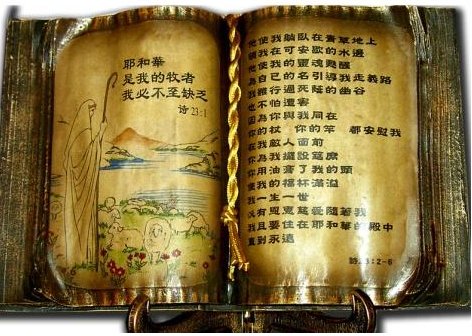 耶和華
是我的牧者
我必不至缺乏
诗 23:1
他使我躺臥在青草地上
領我在可安歇的水邊
他使我的靈魂甦醒
為自已的名引導我走義路
我雖行過死蔭的幽谷
也不怕遭害
因為你與我同在
你的杖 你的竿 都安慰我
在我敵人面前
你為我擺設筵席
你用油膏了我的頭
使我的福杯滿溢
我一生一世
必有恩惠慈愛隨著我
我且要住在耶和華的殿中
直到永遠
詩23:2-6